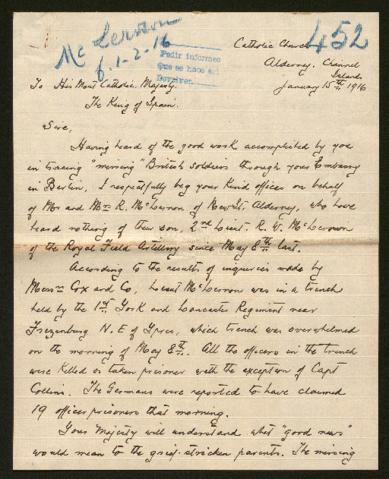 452
Mc Lernon
f. 1-2-16
Pedir informes
que se hace al
Devolver.
Catholic Church
Alderney, Channel
Islands
January 15th 1916
To His Most Catholic Majesty.
The King of Spain.
Sire,
Having heard of the good work accomplished by you
in tracing "missing" British soldiers through your Embassy
in Berlin, I respectfully beg your kind offices on behalf
of Mr and Mrs R. McLernon of New St. Alderney, who have
heard nothing of their son, 2nd Lieut. R. W. McLernon
of the Royal Field Artillery since May 8th last.
According to the results of inquiries made by
Messrs Cox and Co, Lieut McLernon was in a trench
held by the 1st York and Lancaster Regiment near
Frezenburg N.E of Ypres, which trench was overwhelmed
on the morning of May 8th. All the officers in the trench
were killed or taken prisoner with the exception of Capt
Collins. The Germans were reported to have claimed
19 officer prisoners that morning.
Your Majesty will understand what "good news"
would mean to the grief-stricken parents. The missing